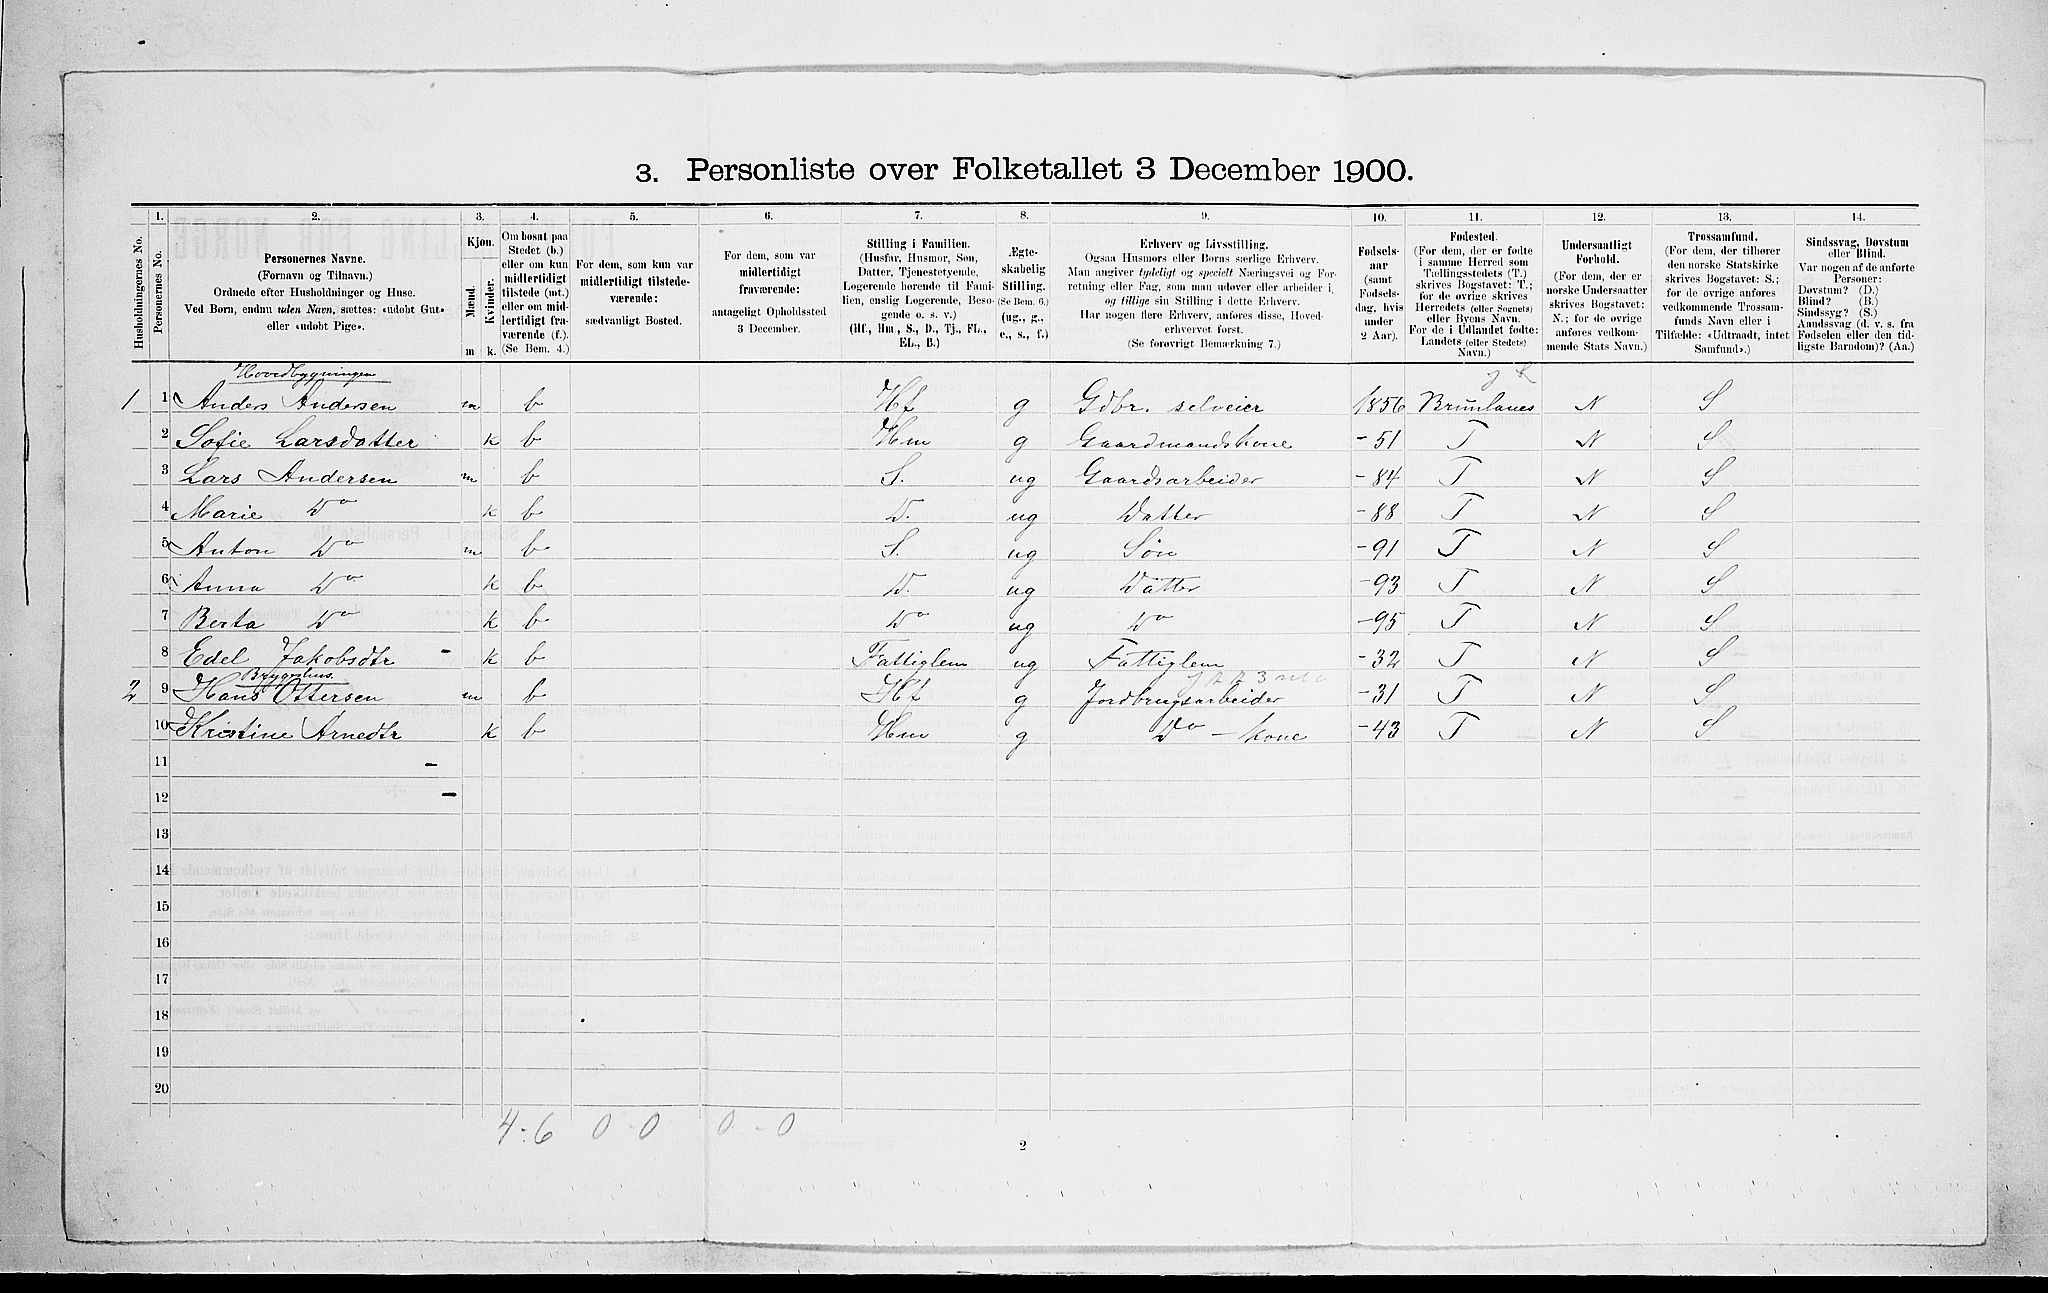 3. Personliste over Folketallet 3 December 1900.
Husholdningernes No.
1. Personernes No.
2. Personernes Navne.
(Fornavn og Tilnavn.)
Ordnede efter Husholdninger og Huse.
Ved Børn, endnu uden Navn, sættes: «udøbt Gut»
eller «udøbt Pige».
3. Kjøn.
Mænd. m
Kvinder. k.
4. Om bosat paa
Stedet (b.)
eller om kun
midlertidigt
tilstede (mt.)
eller om mid-
lertidigt fra-
værende (f.).
(Se Bem. 4.)
5. For dem, som kun var
midlertidigt tilstede-
værende:
sædvanligt Bosted.
6. For dem, som var
midlertidigt
fraværende:
antageligt Opholdssted
3 December.
7. Stilling i Familien.
(Husfar, Husmor, Søn,
Datter, Tjenestetyende,
Logerende hørende til Fami-
lien, enslig Logerende, Besø-
gende o. s. v.)
(Hf., Hm., S., D., Tj., FL.,
EL., B.)
8. Ægte-
skabelig
Stilling.
(Se Bem. 6.)
(ug., g.,
e., s., f.)
9. Erhverv og Livsstilling.
Ogsaa Husmors eller Børns særlige Erhverv.
Man angiver tydeligt og specielt Næringsvei og For-
retning eller Fag, som man udøver eller arbeider i,
og tillige sin Stilling i dette Erhverv.
Har nogen flere Erhverv, anføres disse, Hoved-
erhvervet først.
(Se forøvrigt Bemærkning 7.)
10. Fødsels-
aar
(samt
Fødsels-
dag, hvis
under
2 Aar).
11. Fødested.
(For dem, der er fødte
i samme Herred som
Tællingsstedets (T.)
skrives Bogstavet: T.;
for de øvrige skrives
Herredets (eller Sognets)
eller Byens Navn.
For de i Udlandet fødte:
Landets (eller Stedets)
Navn.)
12. Undersaatligt
Forhold.
(For dem, der er
norske Undersaatter
skrives Bogstavet:
N.; for de øvrige
anføres vedkom-
mende Stats Navn.)
13. Trossamfund.
(For dem, der tilhører
den norske Statskirke
skrives Bogstavet: S.;
for de øvrige anføres
vedkommende Trossam-
funds Navn eller i
Tilfælde: «Udtraadt, intet
Samfund».)
14. Sindssvag, Døvstum
eller Blind.
Var nogen af de anførte
Personer:
Døvstum? (D.)
Blind? (B.)
Sindssyg? (S.)
Aandssvag (d. v. s. fra
Fødselen eller den tid-
ligste Barndom)? (Aa.)
Hovedbygningen
1 1 Anders Andersen m b Hf g Gdbr. selveier 1856 Brunlanes N S
2 Sofie Larsdatter k b Hm g Gaardmandskone -51 T N S
3 Lars Andersen m b S. ug Gaardsarbeider -84 T N S
4 Marie Do k b D. ug Datter -88 T N S
5 Anton Do m b S. ug Søn -91 T N S
6 Anna Do k b D. ug Datter -93 T N S
7 Berta Do k b Do ug Do -95 T N S
8 Edel Jakobsdtr - k b Fattiglem ug Fattiglem -32 T N S
Bryggehus.
2 9 Hans Ottersen m b Hf g Jordbrugsarbeider -31 T N S
10 Kristine Arnedtr k b Hm g Do - kone -43 T N S
11
12
13
14
15
16
17
18
19
20
4-6 0-0 0-0
2